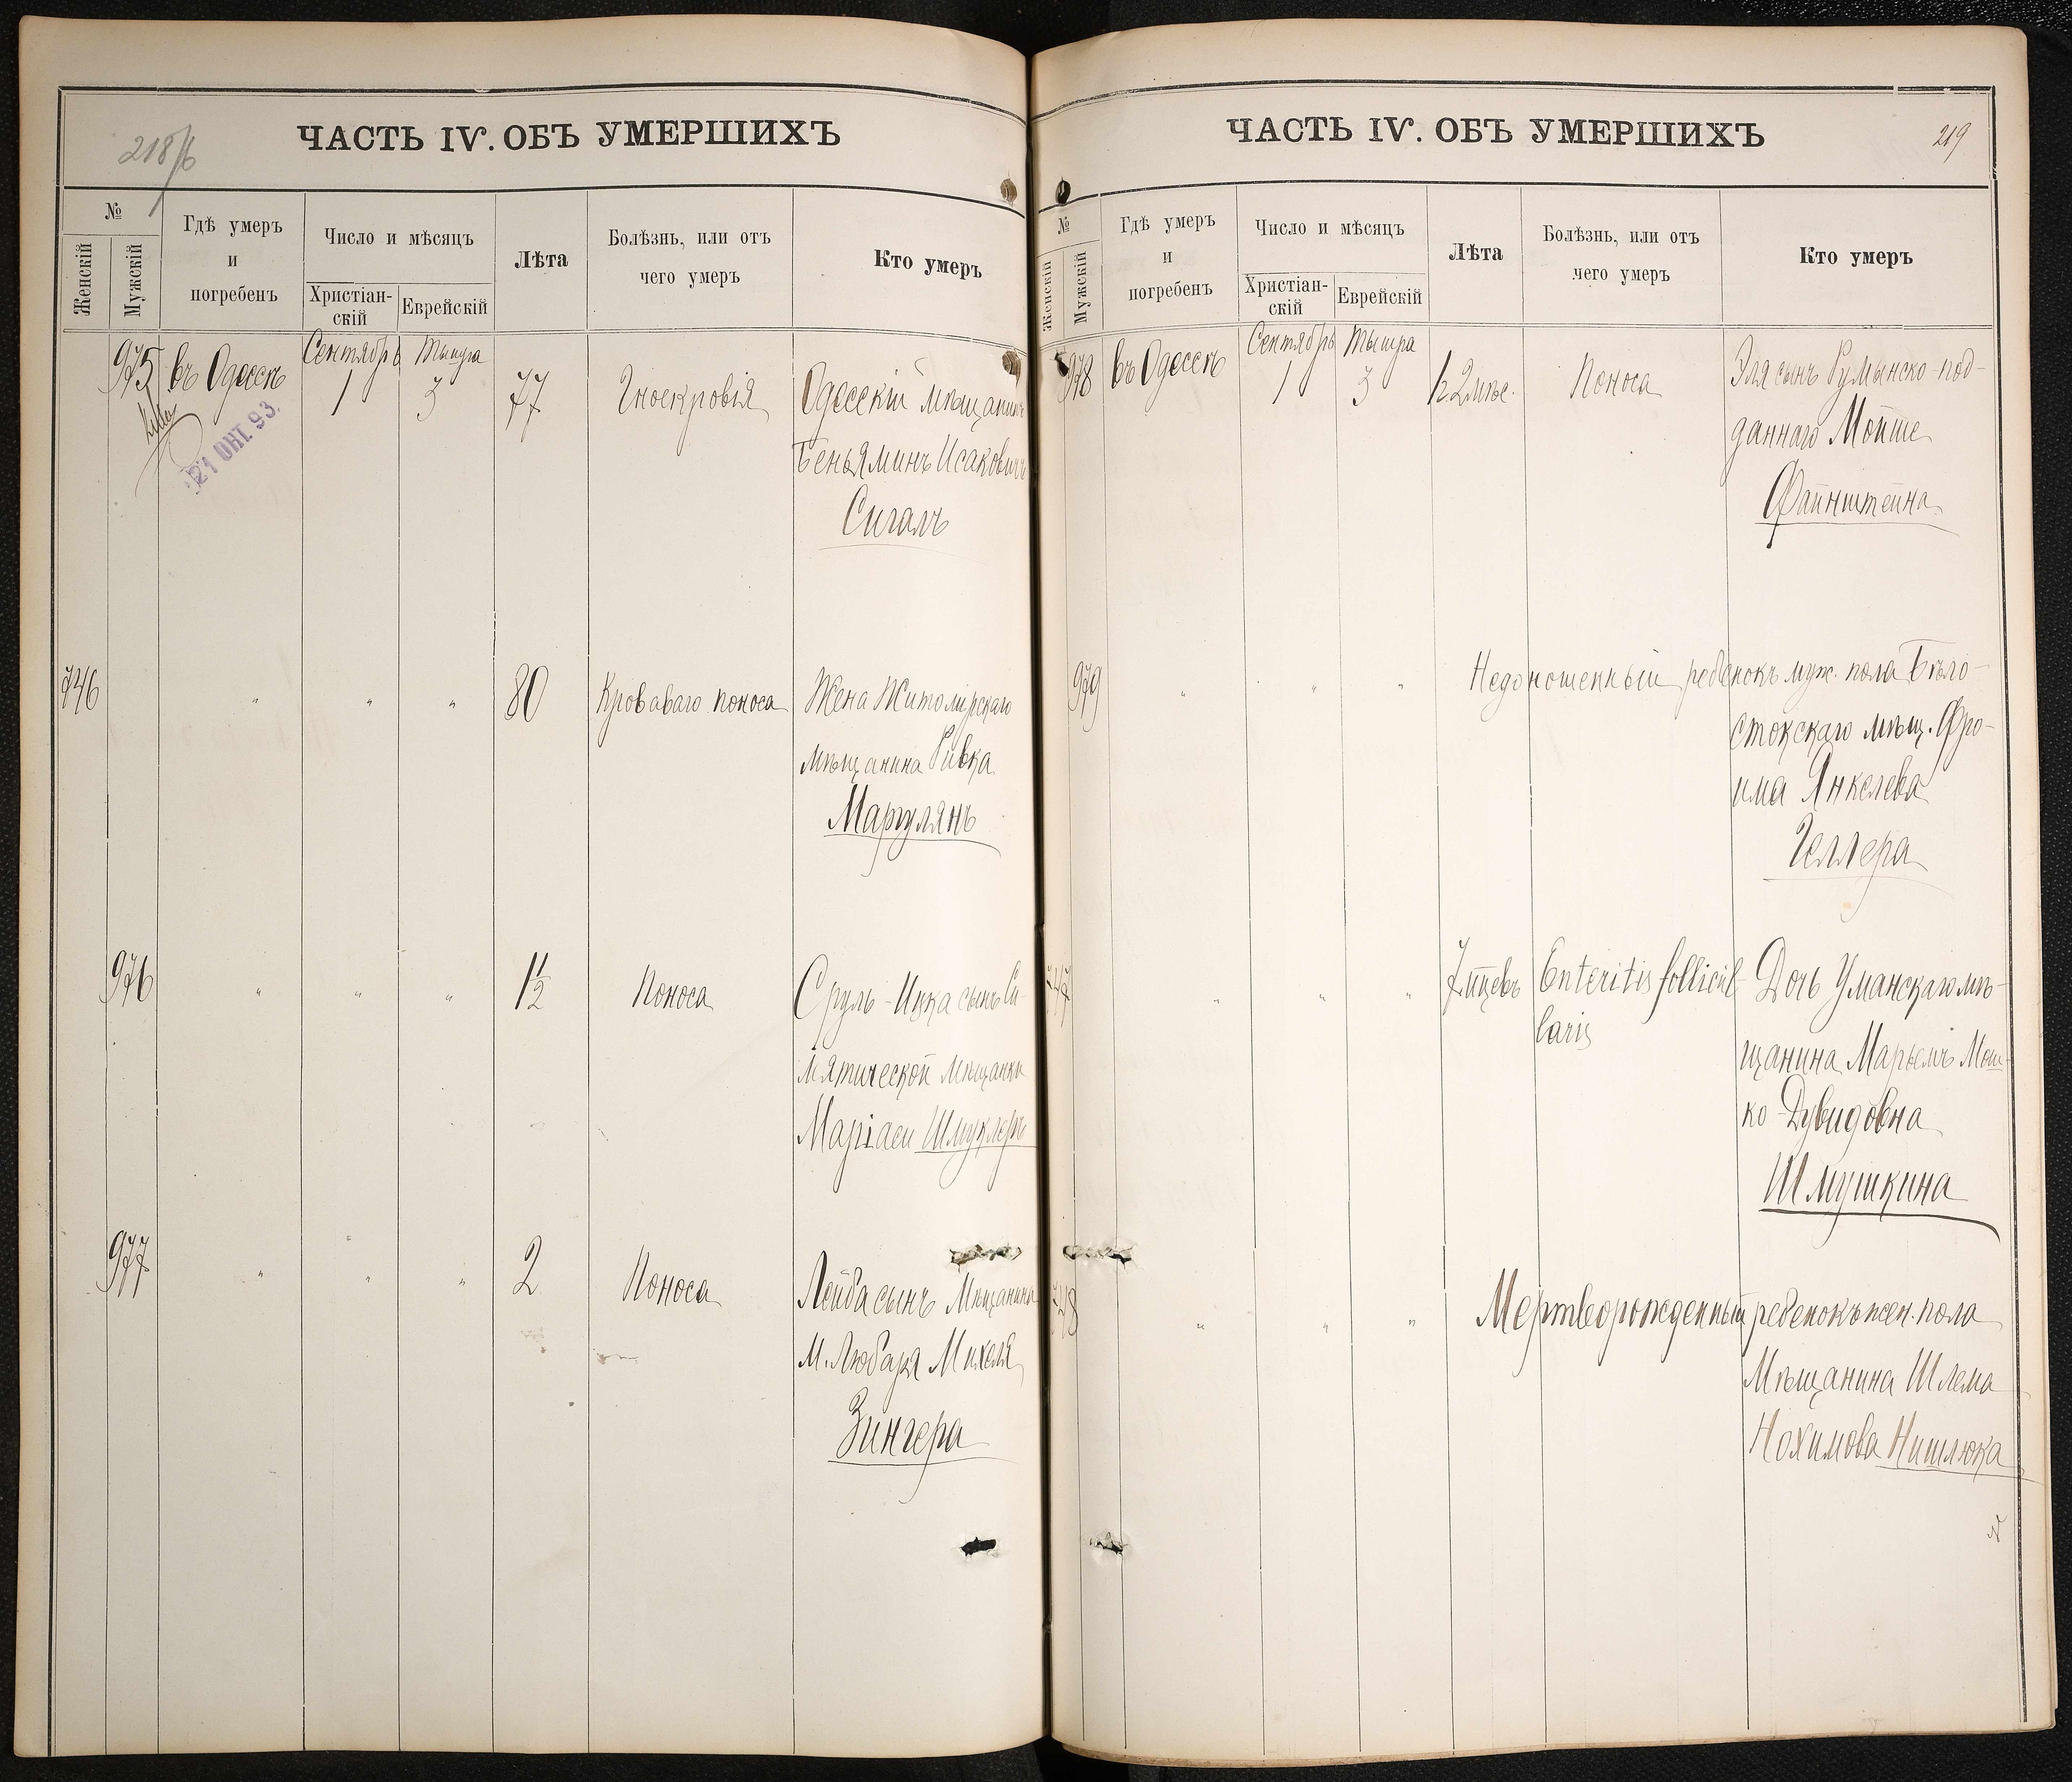 218/б
ЧАСТЬ IV. ОБЪ УМЕРШИХЪ
№
Женскій
Мужскій
Гдѣ умеръ
и
погребенъ
Число и мѣсяцъ
Христіан-
скій
Еврейскій
Лѣта
Болѣзнь, или отъ
чего умеръ
Кто умеръ
Сентябрь Тишра
975 въ Одессѣ 1 3 77 Гноекровія Одесскій мѣщанинъ
21 ОКТ. 93.
Беньяминъ Исаковичъ
Сигалъ
746 " " " 80 Кроваваго поноса Жена Житомірскаго
мѣщанина Ривка
Маргулянъ
976 " " " 1½ Поноса Сруль-Ицка сынъ Си-
мятической мѣщанки
Маріаси Шмуклеръ
977 " " " 2 Поноса Лейба сынъ Мѣщанина
М. Любара Михеля
Зингера
ЧАСТЬ IV. ОБЪ УМЕРШИХЪ
219
№
Женскій
Мужскій
Гдѣ умеръ
и
погребенъ
Число и мѣсяцъ
Христіан-
скій
Еврейскій
Лѣта
Болѣзнь, или отъ
чего умеръ
Кто умеръ
Сентябрь Тишра
978 въ Одессѣ 1 3 1г. 2 мѣс. Поноса Эля сынъ Румынско-под-
даннаго Мойше
Файнштейна
979 " " " Недоношенный ребенокъ муж. пола Бѣло-
стокскаго мѣщ. Фро-
има Янкелева
Геллера
747 " " " 7 мѣс Enteritis follicul- Дочь Уманскаго мѣ-
laris
щанина Марьемъ Мош-
ко-Дувидовна
Шмушкина
748 " " " Мертворожденный ребенокъ жен. пола
Мѣщанина Шлема
Нохимова Нишлюка